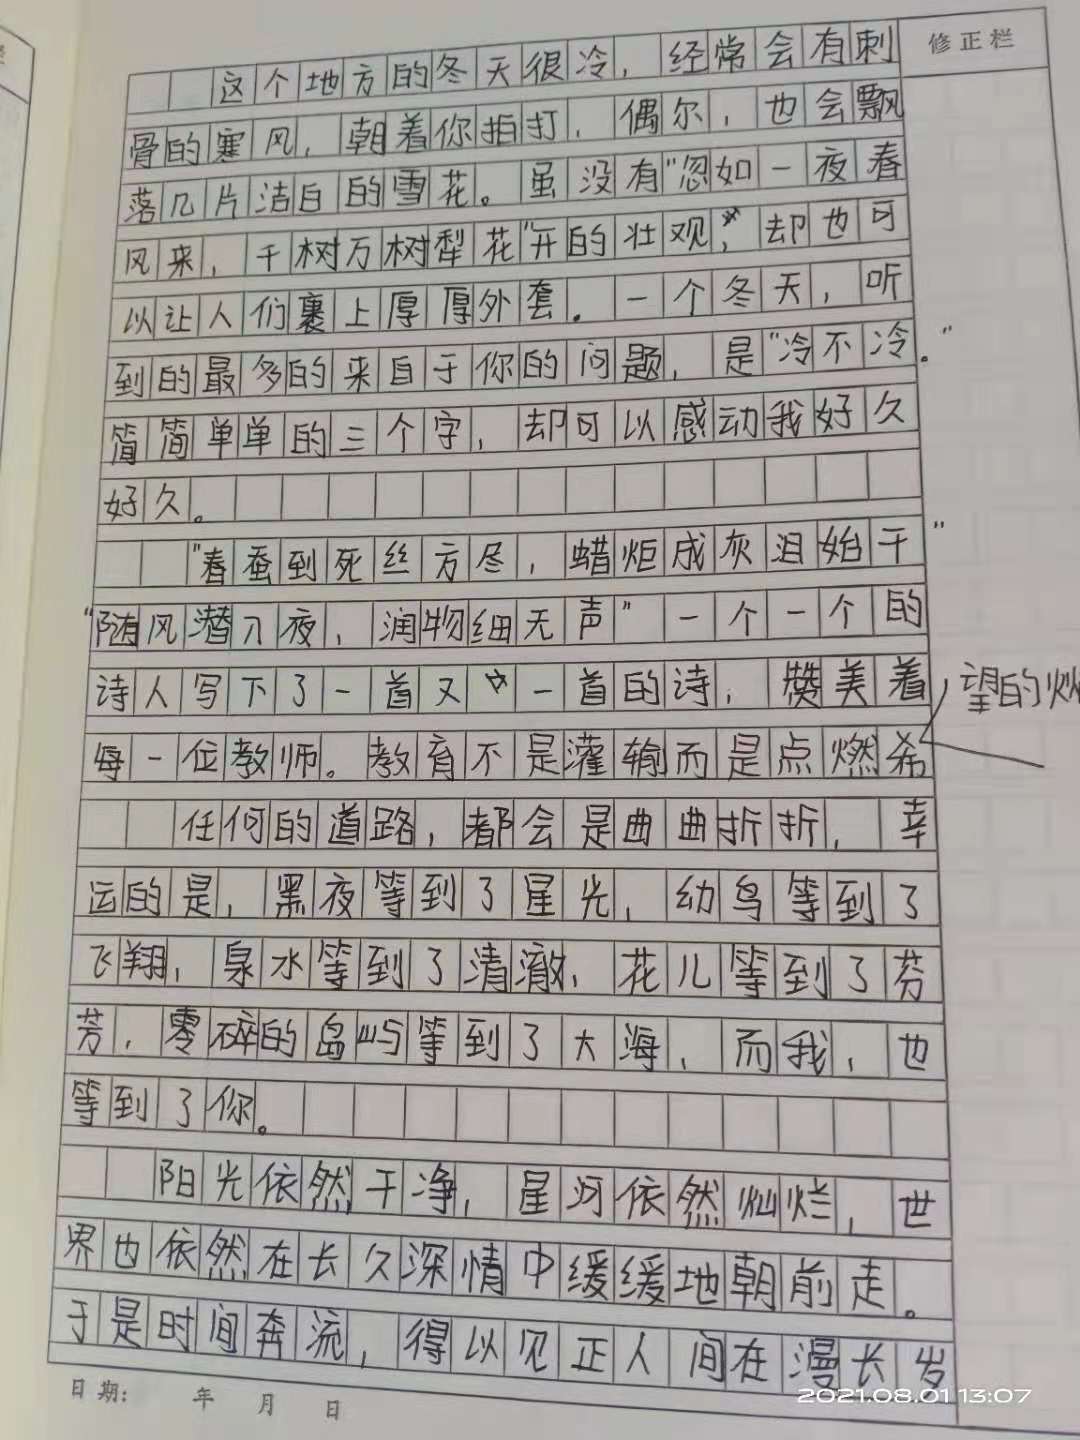 修正栏
这个地方的冬天很冷，经常会有刺
骨的寒风，朝着你拍打，偶尔，也会飘
落几片洁白的雪花。虽没有"忽如一夜春
风来，千树万树犁花"开的壮观，却也可
以让人们裹上厚厚外套。一个冬天，听
到的最多的来自于你的问题，是"冷不冷。"
简简单单的三个字，却可以感动我好久
好久。
"春蚕到死丝方尽，蜡炬成灰泪始干"
"随风潜入夜，润物细无声"一个一个的
诗人写下了一首又一首的诗，赞美着
每一位教师。教育不是灌输而是点燃希
望的灿
任何的道路，都会是曲曲折折，幸
运的是，黑夜等到了星光，幼鸟等到了
飞翔，泉水等到了清澈，花儿等到了芬
芳，零碎的岛屿等到了大海，而我，也
等到了你。
阳光依然干净，星河依然灿烂，世
界也依然在长久深情中缓缓地朝前走。
于是时间奔流，得以见正人间在漫长岁
日期： 年 月 日
2021.08.01 13:07